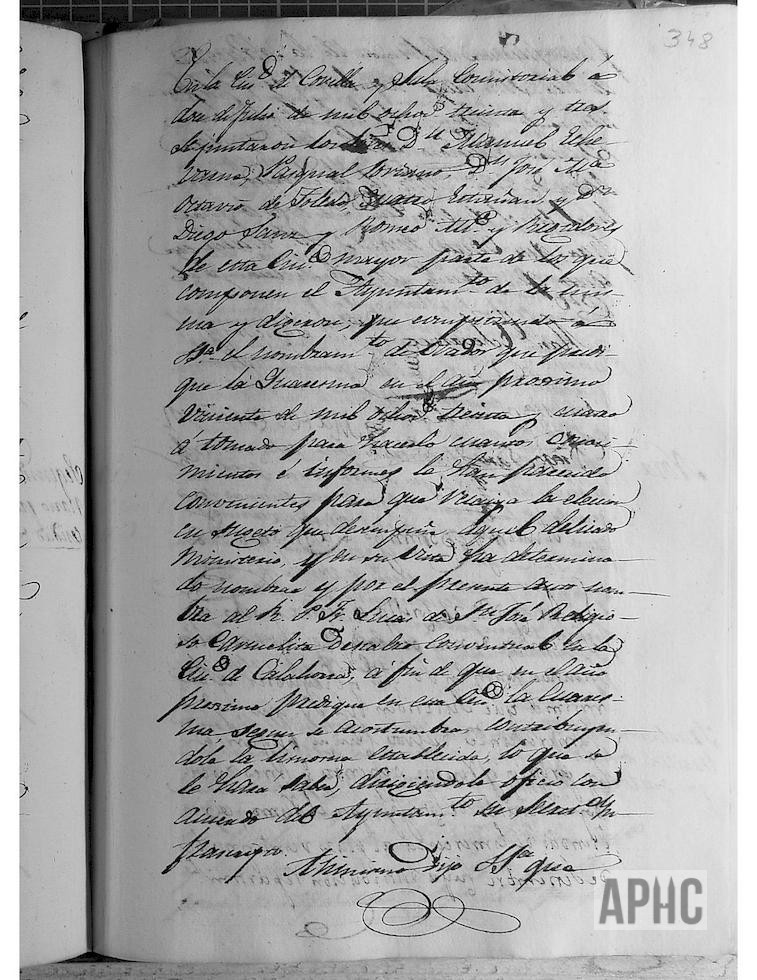 348
En la Ciud. de Corella y Sala Consistorial á
dos de Julio de mil ochoc.s treinta y tres
Se juntaron los D.n Manuel Eche
varria, Pasqual Loriano D.n José M.a
Octavio de Toledo, y D.n
Diego Sanz y Romeo Alc.e y Regidores
de esta Ciu.d mayor parte de los que
componen el Ayuntam.to de la mis-
ma y digeron; que correspondiendo á
S.S.a el nombram.to de Orador que predi-
que la Quaresma en el año proximo
viniente de mil ochoc.s treinta y cuatro
a tomado para hacerlo cuantos conoci-
mientos é informes le han parecido
convenientes para que recaiga la eleccion
en sugeto que desempeñe aquel delicado
Ministerio, y en su vista ha determina-
do nombrar y por el presente auto nom-
bra al R. P. Fr. Lucas de S.n José Religio-
so Carmelita Descalzo Conventual en la
Ciu.d de Calahorra, á fin de que en el año
proximo predique en esta Ciu.d la Cuares-
ma segun se acostumbra, contribuyen-
dole la limosna establecida, lo que se
le hará saber, dirigiendole oficio con
acuerdo del Ayuntam.to su Secret.o
Asimismo dijo S.S.a que
APHC